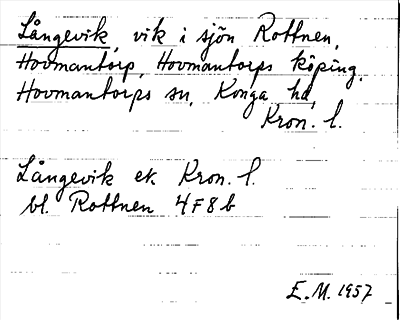 Långevik, vik i sjön Rottnen,
Hovmantorp, Hovmantorps köping,
Hovmantorps sn, Konga hd,
Kron. l.
Långevik ek Kron. l.
bl. Rottnen 4F8b
E.M. 1957